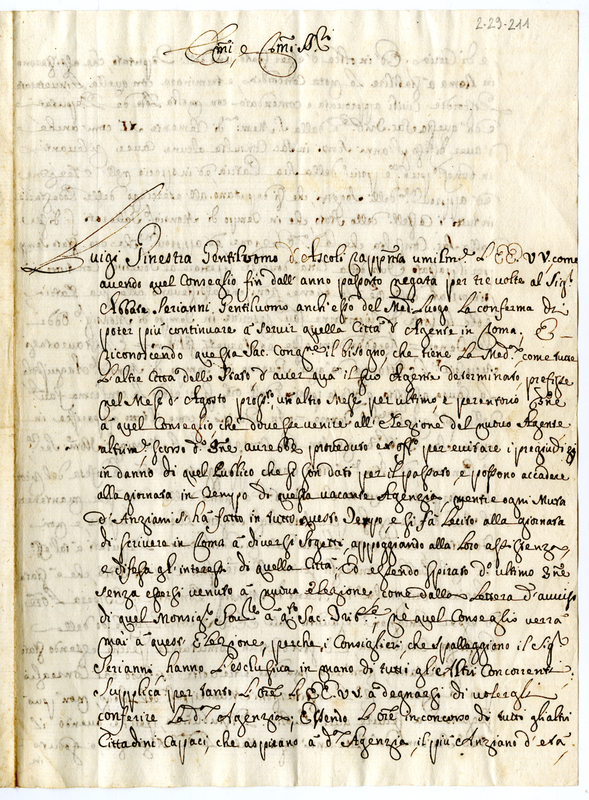 2-29-211
Emi, e Rmi SSri
Luigi Ginestra Gentiluomo d'Ascoli rappnta umilmte. all'EE. VV. come
avendo quel Conseglio fin dall'anno passato negata per tre volte al Sigr.
Abbate Serianni, Gentiluomo anch'esso del Med. Luogo la conferma di
poter più continuare a servir quella Città d'Agente in Roma. E
riconoscendo questa Sac. Congne. il bisogno, che tiene la Med. come tutte
l'altre Città dello Stato d'aver quà il suo Agente determinato prefisse
nel Mese d'Agosto prosso. un altro Mese per ultimo e perentorio Tñe
a quel Conseglio che dovesse venire all'elezione del nuovo Agente
altrim. scorso d. Tñe avrebbe proveduto ex offo. per evitare i pregiudizj
in danno di quel Publico che si son dati per il passato, e possono accadere
alla giornata in tempo di questa vacante Agenzia, mentre ogni Muta
d'Anziani si hà fatto in tutto questo tempo e si fà lecito alla giornata
di scrivere in Roma a diversi Sogetti, appoggiando alla loro assistenza
e difesa gl'interessi di quella Città. Ed essendo spirato do. ultimo Tñe
senza essersi venuto a nuova elezione come dalla lettera d'avviso
di quel Monsigr. a qta Sac. nè quel Conseglio verrà
mai a quest'elezione, perche i Consiglieri che spalleggiano il Sigr
Serianni, hanno l'esclusiva in mano di tutti gli altri Concorrenti.
Supplica per tanto l'Ore l'EE. VV. a degnarsi di volergli
conferire la da. Agenzia, essendo l'Ore in concorso di tutti gli altri
Cittadini capaci, che aspirano a da. Agenzia, il più Anziano d'età,